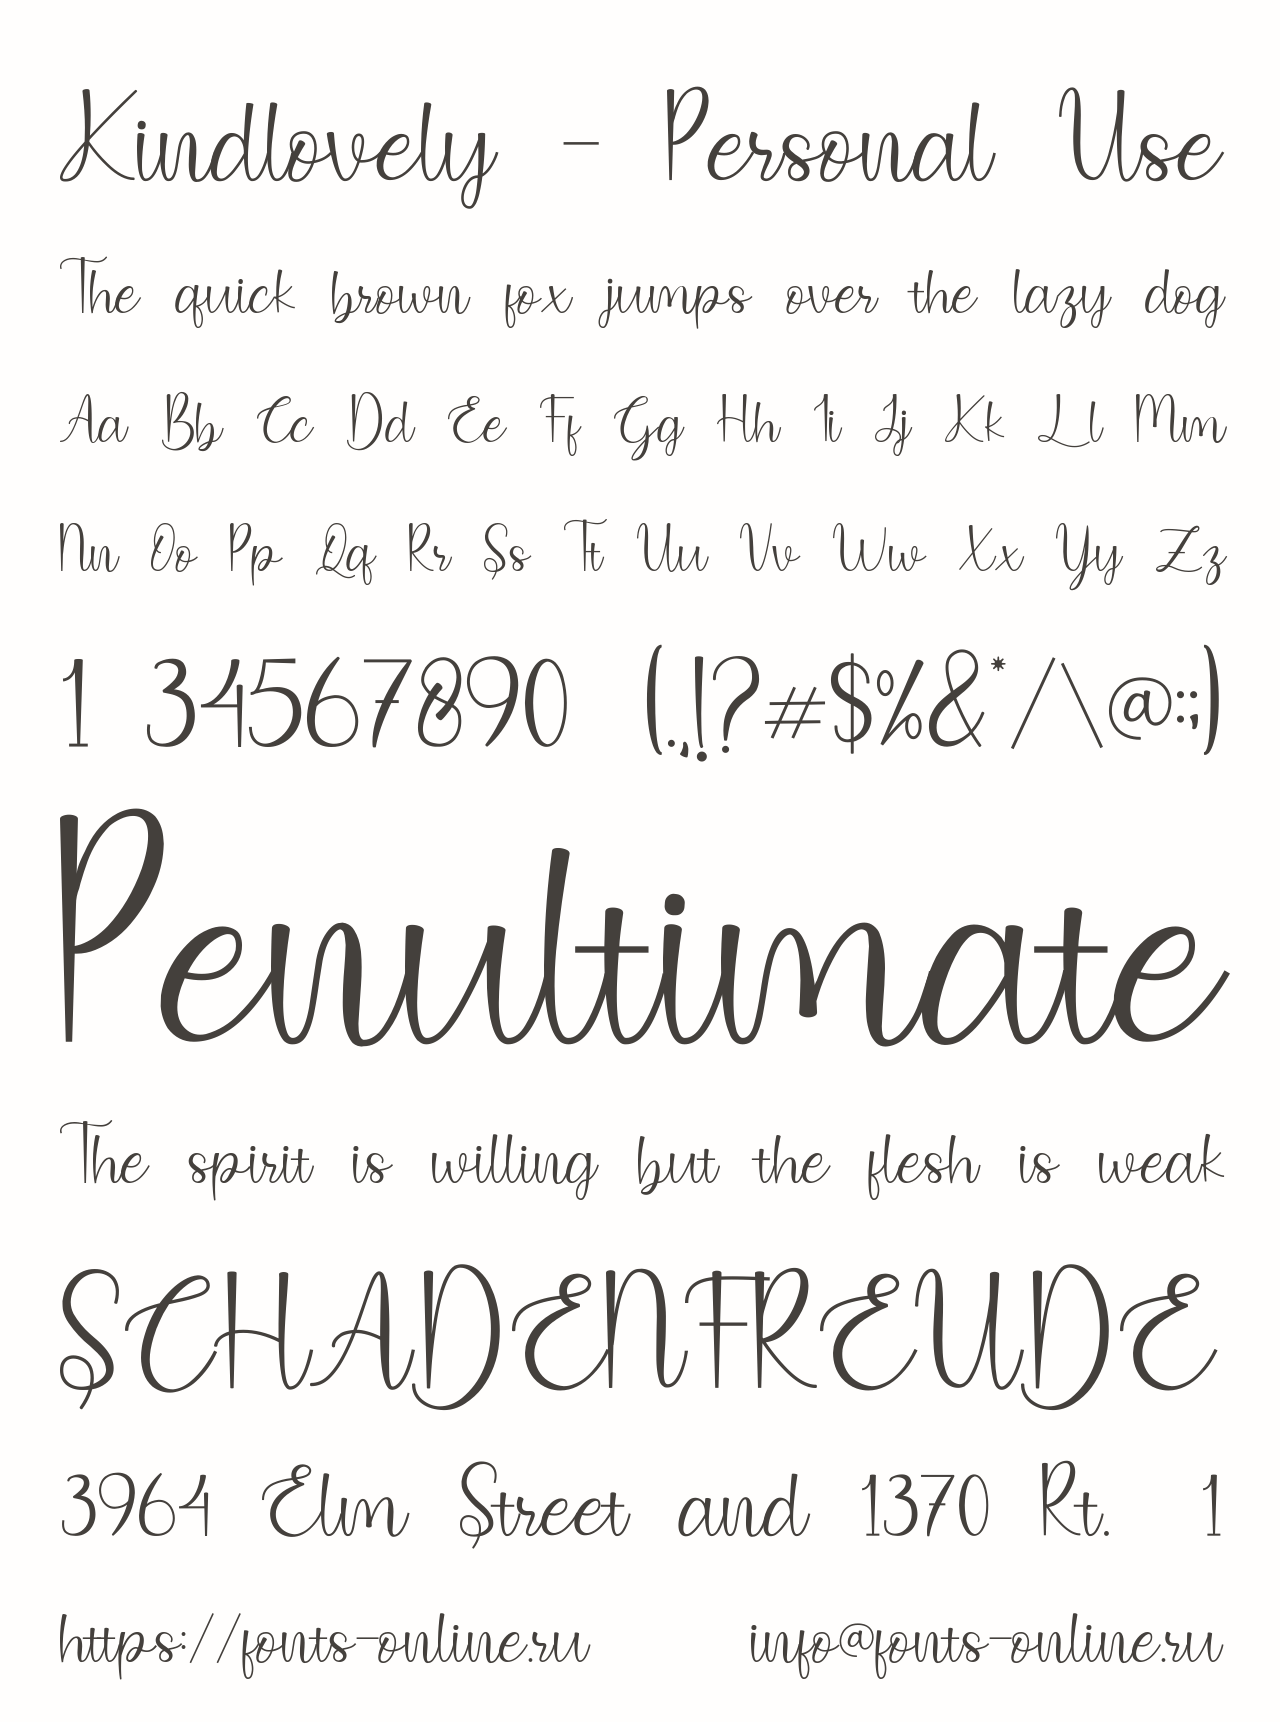 Kindlovely - Personal Use
The quick brown fox jumps over the lazy dog
Aa Bb Cc Dd Ee Ff Gg Hh Ii Jj Kk Ll Mm
Nn Oo Pp Qq Rr Ss Tt Uu Vv Ww Xx Yy Zz
1 34567890 (.,!?#$%&*/\@:;)
Penultimate
The spirit is willing but the flesh is weak
SCHADENFREUDE
3964 Elm Street and 1370 Rt. 1
https://fonts-online.ru info@fonts-online.ru